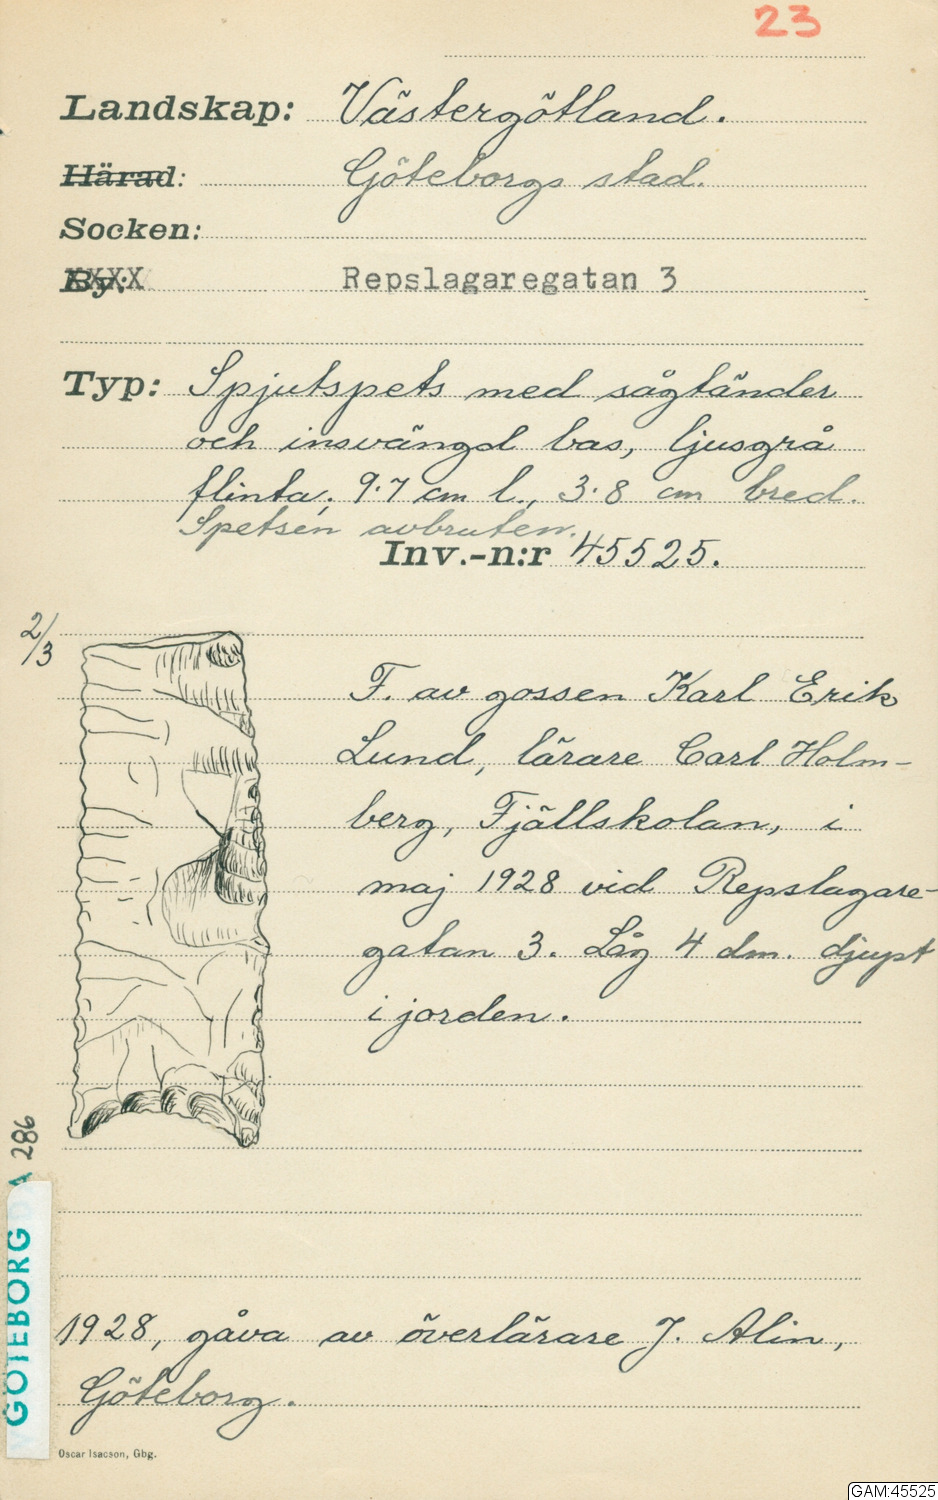 23
Landskap: Västergötland.
Härad: Göteborgs stad.
Socken:
By: XXXX Repslagaregatan 3
Typ: Spjutspets med sågtänder
och insvängd bas, ljusgrå
flinta, 9.7 cm l., 3.8 cm bred.
Spetsen avbruten.
Inv.-n:r 45525.
2/3
F. av gossen Karl Erik
Lund, lärare Carl Holm-
berg, Fjällskolan, i
maj 1928 vid Repslagare-
gatan 3. Låg 4 dm. djupt
i jorden.
GÖTEBORG A 286
1928, gåva av överlärare J. Alin,
Göteborg.
Oscar Isacson, Gbg.
GAM:45525